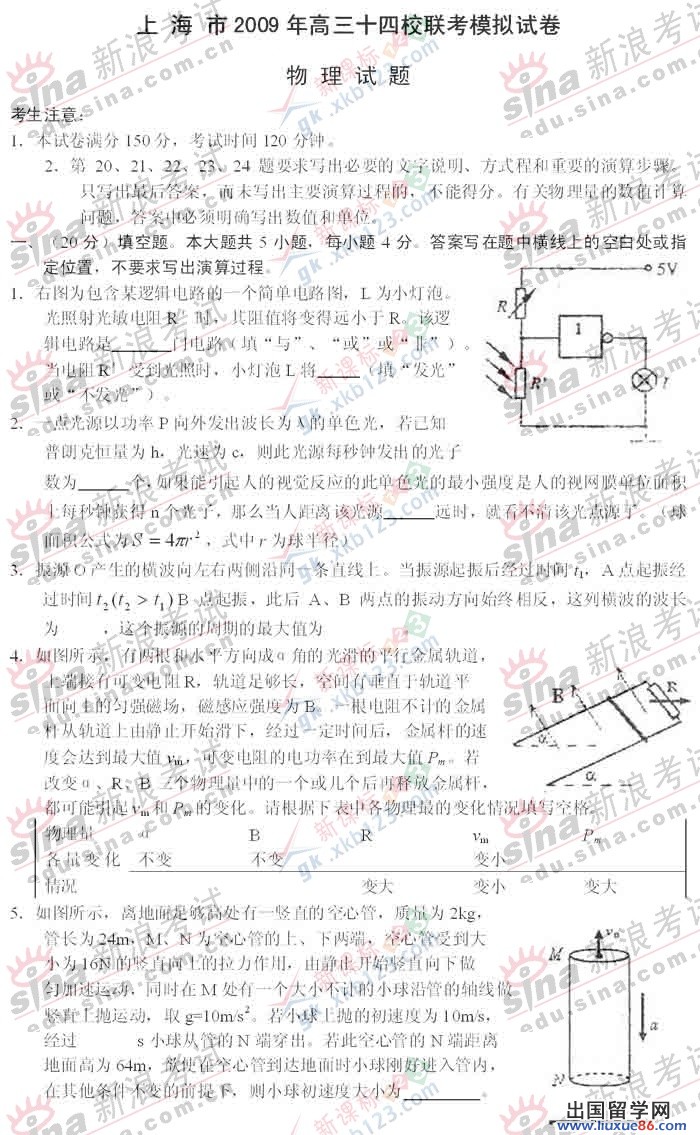 上 海 市 2009 年高三十四校联考模拟试卷
物 理 试 题
考生注意：
1．本试卷满分 150 分，考试时间 120 分钟。
2．第 20、21、22、23、24 题要求写出必要的文字说明、方式程和重要的演算步骤。
只写出最后答案，而未写出主要演算过程的，不能得分。有关物理量的数值计算
问题，答案中必须明确写出数值和单位。
一、（20 分）填空题。本大题共 5 小题，每小题 4 分。答案写在题中横线上的空白处或指
定位置，不要求写出演算过程。
1．右图为包含某逻辑电路的一个简单电路图，L 为小灯泡。
光照射光敏电阻 R' 时，其阻值将变得远小于 R。该逻
辑电路是______门电路（填“与”、“或”或“非”）。
当电阻 R' 受到光照时，小灯泡 L 将_____（填“发光”
或“不发光”）。
5V
R
1
R'
2．一点光源以功率 P 向外发出波长为 λ 的单色光，若已知
普朗克恒量为 h，光速为 c，则此光源每秒钟发出的光子
数为______个，如果能引起人的视觉反应的此单色光的最小强度是人的视网膜单位面积
上每秒钟获得 n 个光子，那么当人距离该光源______远时，就看不清该光点源了 （球
面积公式为 S = 4πr²，式中 r 为球半径）
3．振源 O 产生的横波向左右两侧沿同一条直线上。当振源起振后经过时间 t₁，A 点起振经
过时间 t₂(t₂ > t₁) B 点起振，此后 A、B 两点的振动方向始终相反，这列横波的波长
为 ，这个振源的周期的最大值为 。
4．如图所示，有两根和水平方向成 α 角的光滑的平行金属轨道，
上端接有可变电阻 R，轨道足够长，空间有垂直于轨道平
面向上的匀强磁场，磁感应强度为 B。一根电阻不计的金属
杆从轨道上由静止开始滑下，经过一定时间后，金属杆的速
度会达到最大值 vm，可变电阻的电功率在到最大值 Pm。若
改变 α、R、B 三个物理量中的一个或几个后再释放金属杆，
都可能引起 vm 和 Pm 的变化。请根据下表中各物理最的变化情况填写空格。
B
R
α
α
物理量 α B R vm Pm
各量变化 不变 不变 变小
情况 变大 变小 变大
5．如图所示，离地面足够高处有一竖直的空心管，质量为 2kg，
管长为 24m，M、N 为空心管的上、下两端，空心管受到大
小为 16N 的竖直向上的拉力作用，由静止开始竖直向下做
匀加速运动，同时在 M 处有一个大小不计的小球沿管的轴线做
竖直上抛运动，取 g=10m/s²。若小球上抛的初速度为 10m/s，
经过 s 小球从管的 N 端穿出。若此空心管的 N 端距离
地面高为 64m，欲使在空心管到达地面时小球刚好进入管内，
在其他条件不变的前提下，则小球初速度大小为 。
M
v₀
a
N
出国留学网
www.liuxue86.com
sina 新浪考试
edu.sina.com.cn
新课标
gk.xkb123.com